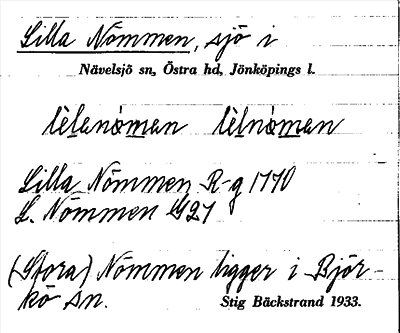 Lilla Nömmen, sjö i
Nävelsjö sn, Östra hd, Jönköpings l.
lìlanömen lìlnömen
Lilla Nömmen R-g 1770
L. Nömmen G 27
(Stora) Nömmen ligger i Björ-
kö sn.
Stig Bäckstrand 1933.